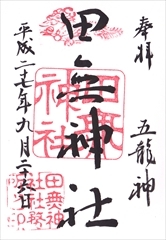 奉拝
五龍神
田無神社
平成二十七年九月二十六日
田無
神社
田無神
社社務